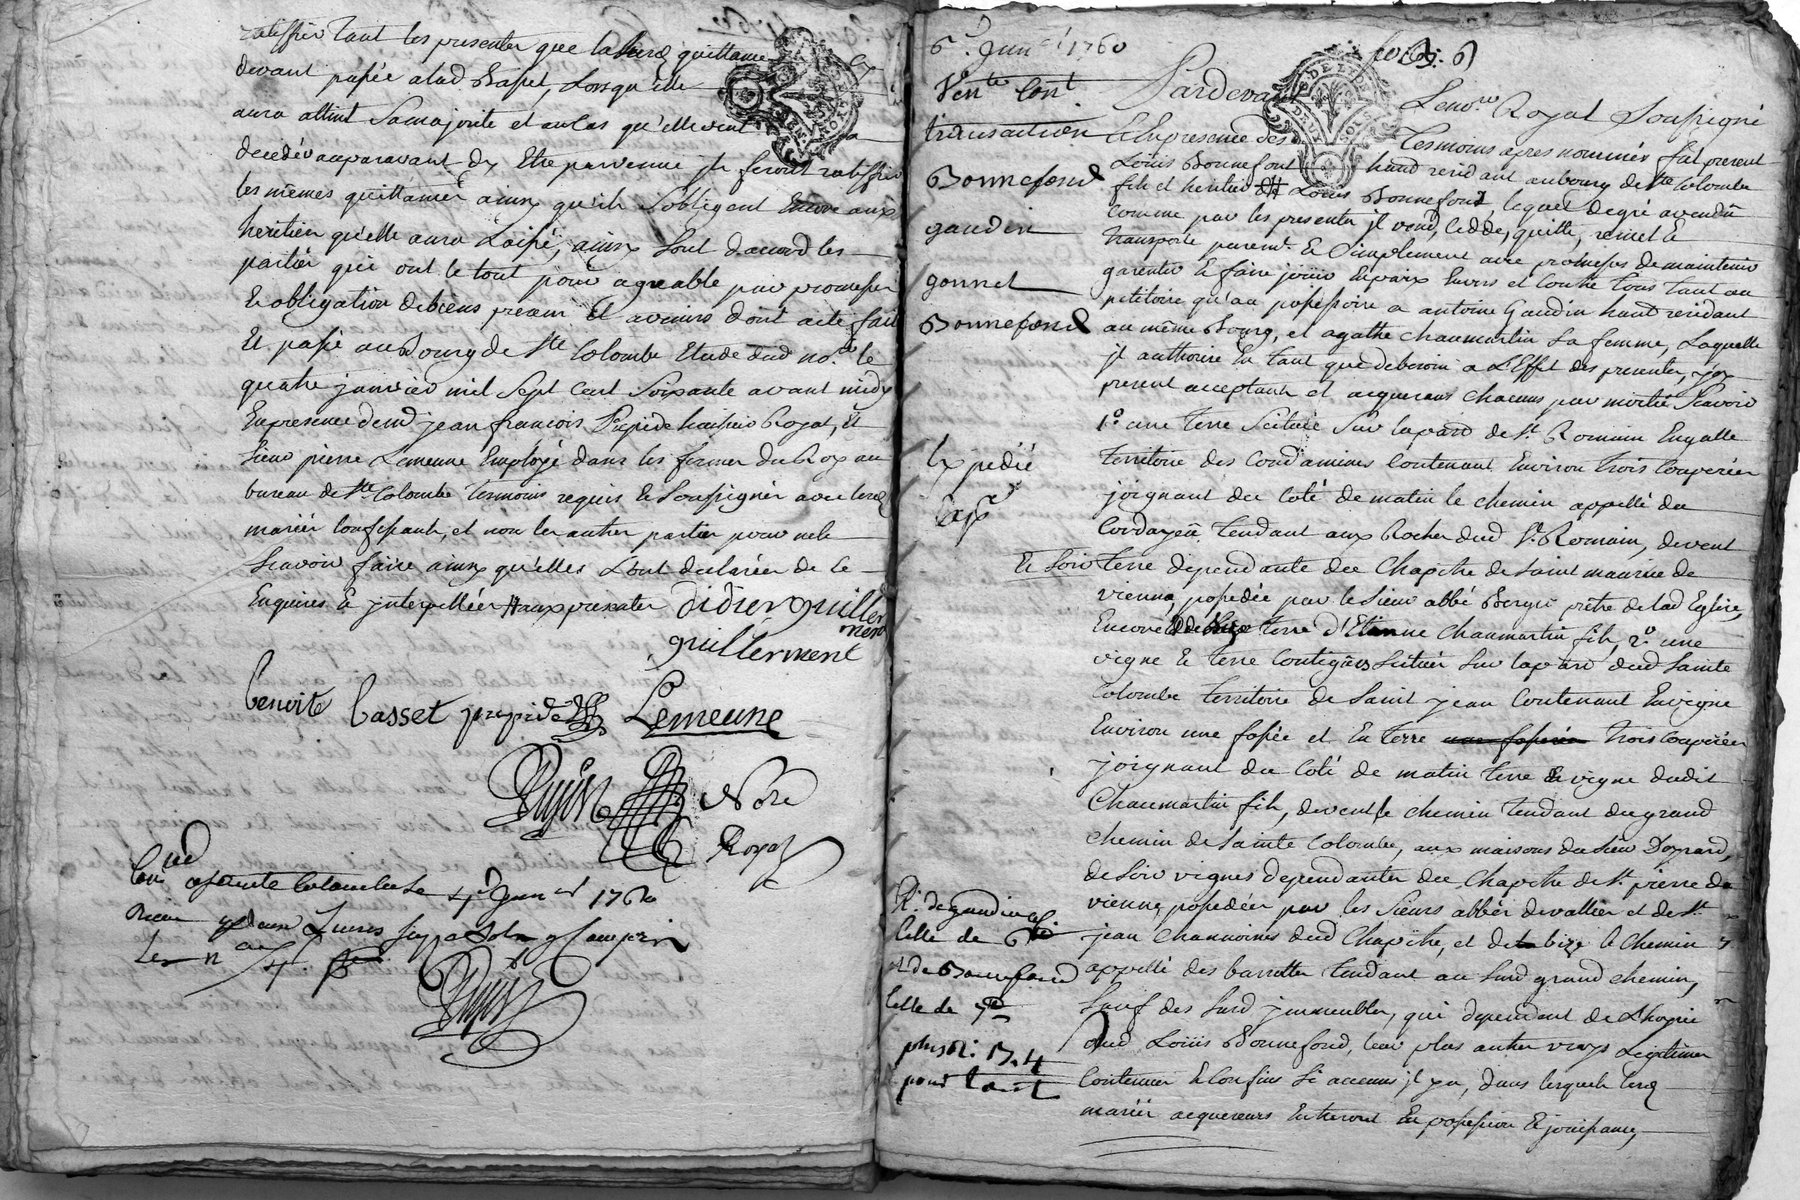 ratiffier tant les presentes que lad. quittance
devant passée a lad Basset, Lorsqu'elle
aura attint Sa majorité et au cas qu'elle vent
decedé auparavant d'y Etre parvenue jls feront ratiffier
les mêmes quittances ainsy qu'ils S'obligent Encore aux
heritiers qu'elle aura Laissé, ainsy Sont d'accord les
parties qui ont le tout pour agreable par promesses
Et obligation de biens presens Et avenirs dont acte fait
Et passé au Bourg de Ste Colombe Etude dud nore. le
quatre janvier mil Sept cent Soixante avant midy
En presence de md jean françois huissier Royal, Et
Sieur pierre Lemeune Employé dans les fermes du Roy au
bureau de Ste Colombe temoins requis & Soussignés avec les
mariés confessants, et non les autres parties pour ne le
Scavoir faire ainsy qu'elles L'ont declarées de ce
Enquises & jnterpellées aux presentes didier guiller
ment
guillerment
benoite basset Lemeune
Nore
Royal
a Sainte Colombe Le 4e Janer 1760
6e. Janer 1760
fo 6
Vente Cont
transaction
Bonnefond
gaudin
gonnet
Bonnefond
Expedié
Pardevant Le nore Royal Soussigné
& En presence des Tesmoins apres nommés fut present
Louis Bonnefont hand residant au bourg de Ste Colombe
fils et heritier de Louis Bonnefond lequel de gré a vendu
comme par les presentes jl vend, cedde, quitte, remet &
transporte purement & Simplement avec promesses de maintenir
garentir & faire jouir En paix Envers et Contre tous tant au
petitoire qu'au possessoire a antoine Gaudin hand residant
au même Bourg, et agathe Chaumartin Sa femme, Laquelle
jl authorise En tant que de besoin a L'Effet des presentes, jcy
present acceptants et acquereurs chacuns par moitié Scavoir
1o. une terre Scituée Sur la parr de St. Romain En galle
territoire des Condamines Contenant Environ trois Couperées
joignant du Coté de matin le chemin appellé du
tendant aux Rocher dud St. Romain, de vent
& Soir terre dependante du Chapitre de Saint maurice de
vienne, possedée par le Sieur abbé prêtre de lad Eglise,
Encore de bize terre d'Etienne Chaumartin fils, 2o. une
vigne & terre Contigües Scituées Sur la parr dud Sainte
Colombe territoire de Saint jean Contenant En vigne
Environ une fossée et En terre trois Couperées
joignant du Coté de matin terre & vigne dudit
Chaumartin fils, de vent le chemin tendant du grand
chemin de Sainte Colombe, aux maisons du Sieur
de Soir vignes dependantes du Chapitre de St. pierre de
vienne possedées par les Sieurs abbés de vallier et de St.
jean Channoines dud Chapitre, et de bize le Chemin
appellé des barrettes tendant au Susd grand chemin,
Sauf des Susd jmmeubles, qui dependent de L'hoyrie
dud Louis Bonnefond, leurs plus autres vrays Legitimes
Contenues & Confins Si aucuns jl y a, dans lesquels lesd
mariés acquereurs Entreront En possession & jouissance,
de gaudin
Celle de
et de Bonnefond
Celle de